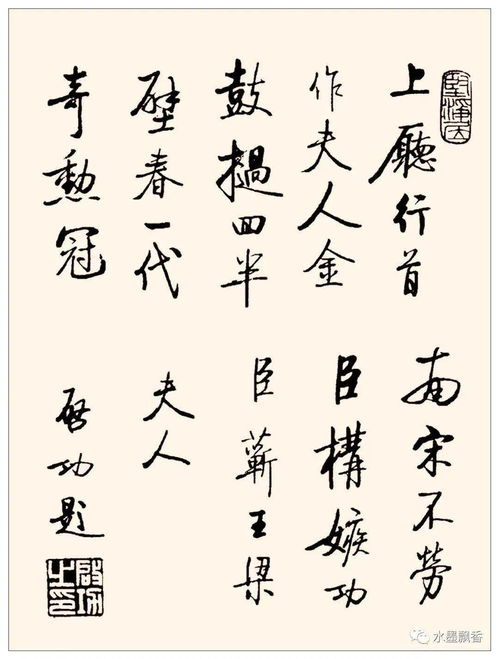 堅淨居
上廳行首
作夫人金
鼓撾回半
壁春一代
奇勳冠
南宋不勞
臣構嫉功
臣蘄王梁
夫人
啓功題
啓功之印
水墨飘香